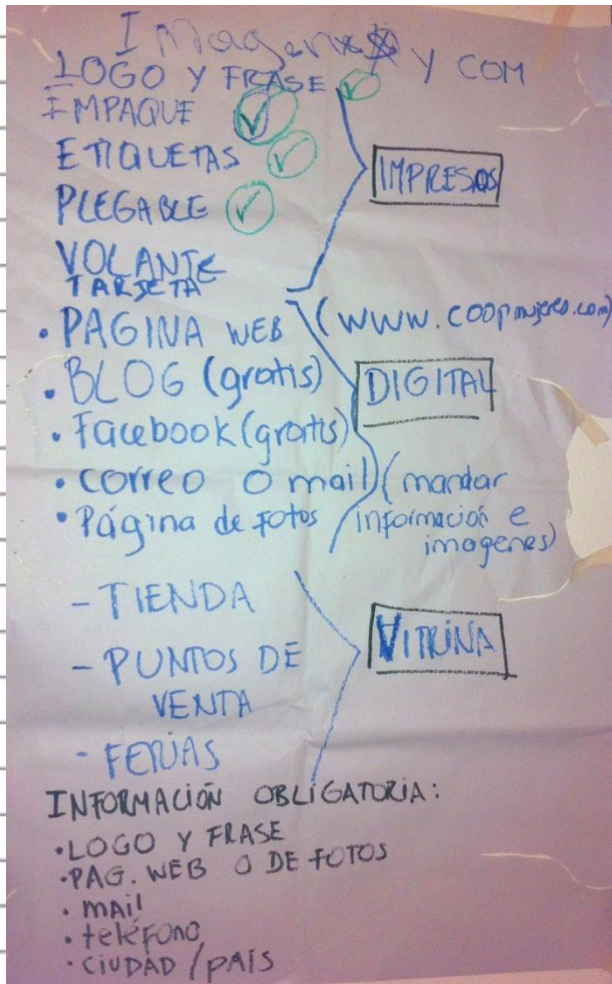 Imagen y COM
LOGO Y FRASE
IMPAQUE
ETIQUETAS
PLEGABLE
IMPRESOS
VOLANTE
TARJETA
• PAGINA WEB (www.coopmujeres.com)
• BLOG (gratis)
DIGITAL
• Facebook (gratis)
• correo o mail (mandar
información e
imagenes)
• Página de fotos
- TIENDA
- PUNTOS DE
VENTA
- FERIAS
VITRINA
INFORMACIÓN OBLIGATORIA:
• LOGO Y FRASE
• PAG. WEB O DE FOTOS
• mail
• teléfono
• CIUDAD / PAÍS